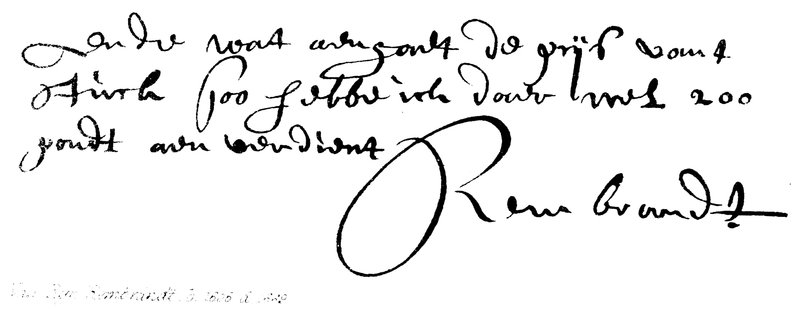 ende wat aengaet de prijs vant
stuck soo hebbe ick daer wel 200
pondt aen verdient
Rembrandt
Van Ryn Rembrandt